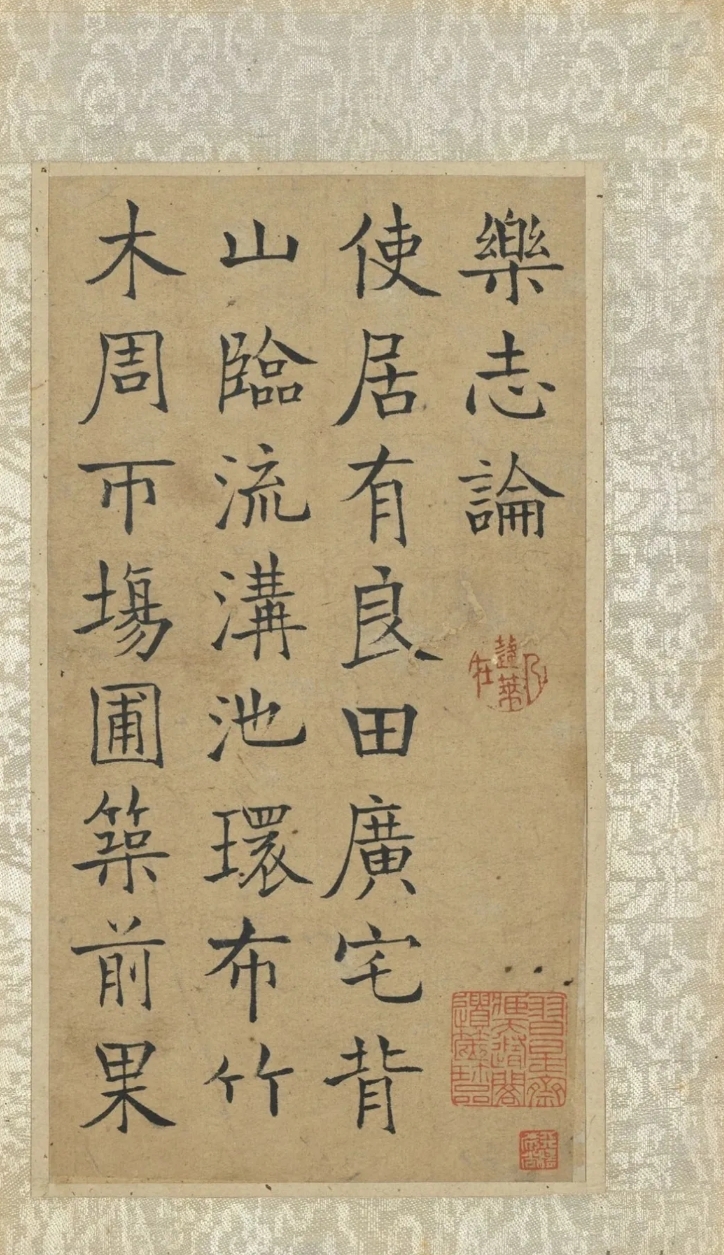 樂志論
使居有良田廣宅背
山臨流溝池環布竹
木周帀塲圃築前果